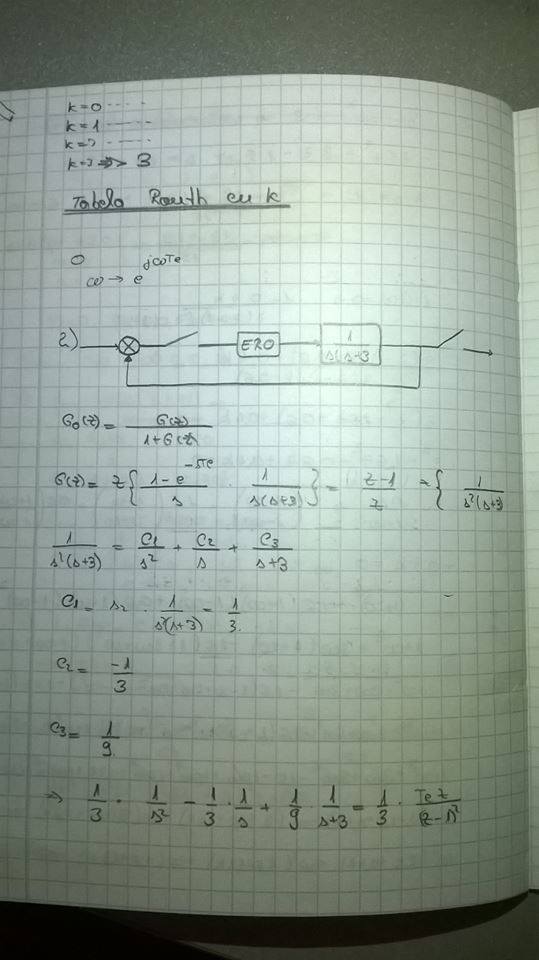 k=0 ----
k=1 -----
k=2 ----
k=3 => 3
Tabela Routh cu k
0
ω → e^{jωTe}
2) ⊗ EZO 1/(s(s+3)
G₀(z) = G(z)/(1+G(z)
G(z) = z{ (1-e^{-sTe})/s · 1/(s(s+3)) } = (z-1)/z · z{ 1/(s²(s+3)
1/(s²(s+3)) = C1/s² + C2/s + C3/(s+3)
C1 = s2 · 1/(s²(s+3)) = 1/3.
C2 = -1/3
C3 = 1/9.
=> 1/3 · 1/s² - 1/3 · 1/s + 1/9 · 1/(s+3) = 1/3 · Te z/(z-1)²